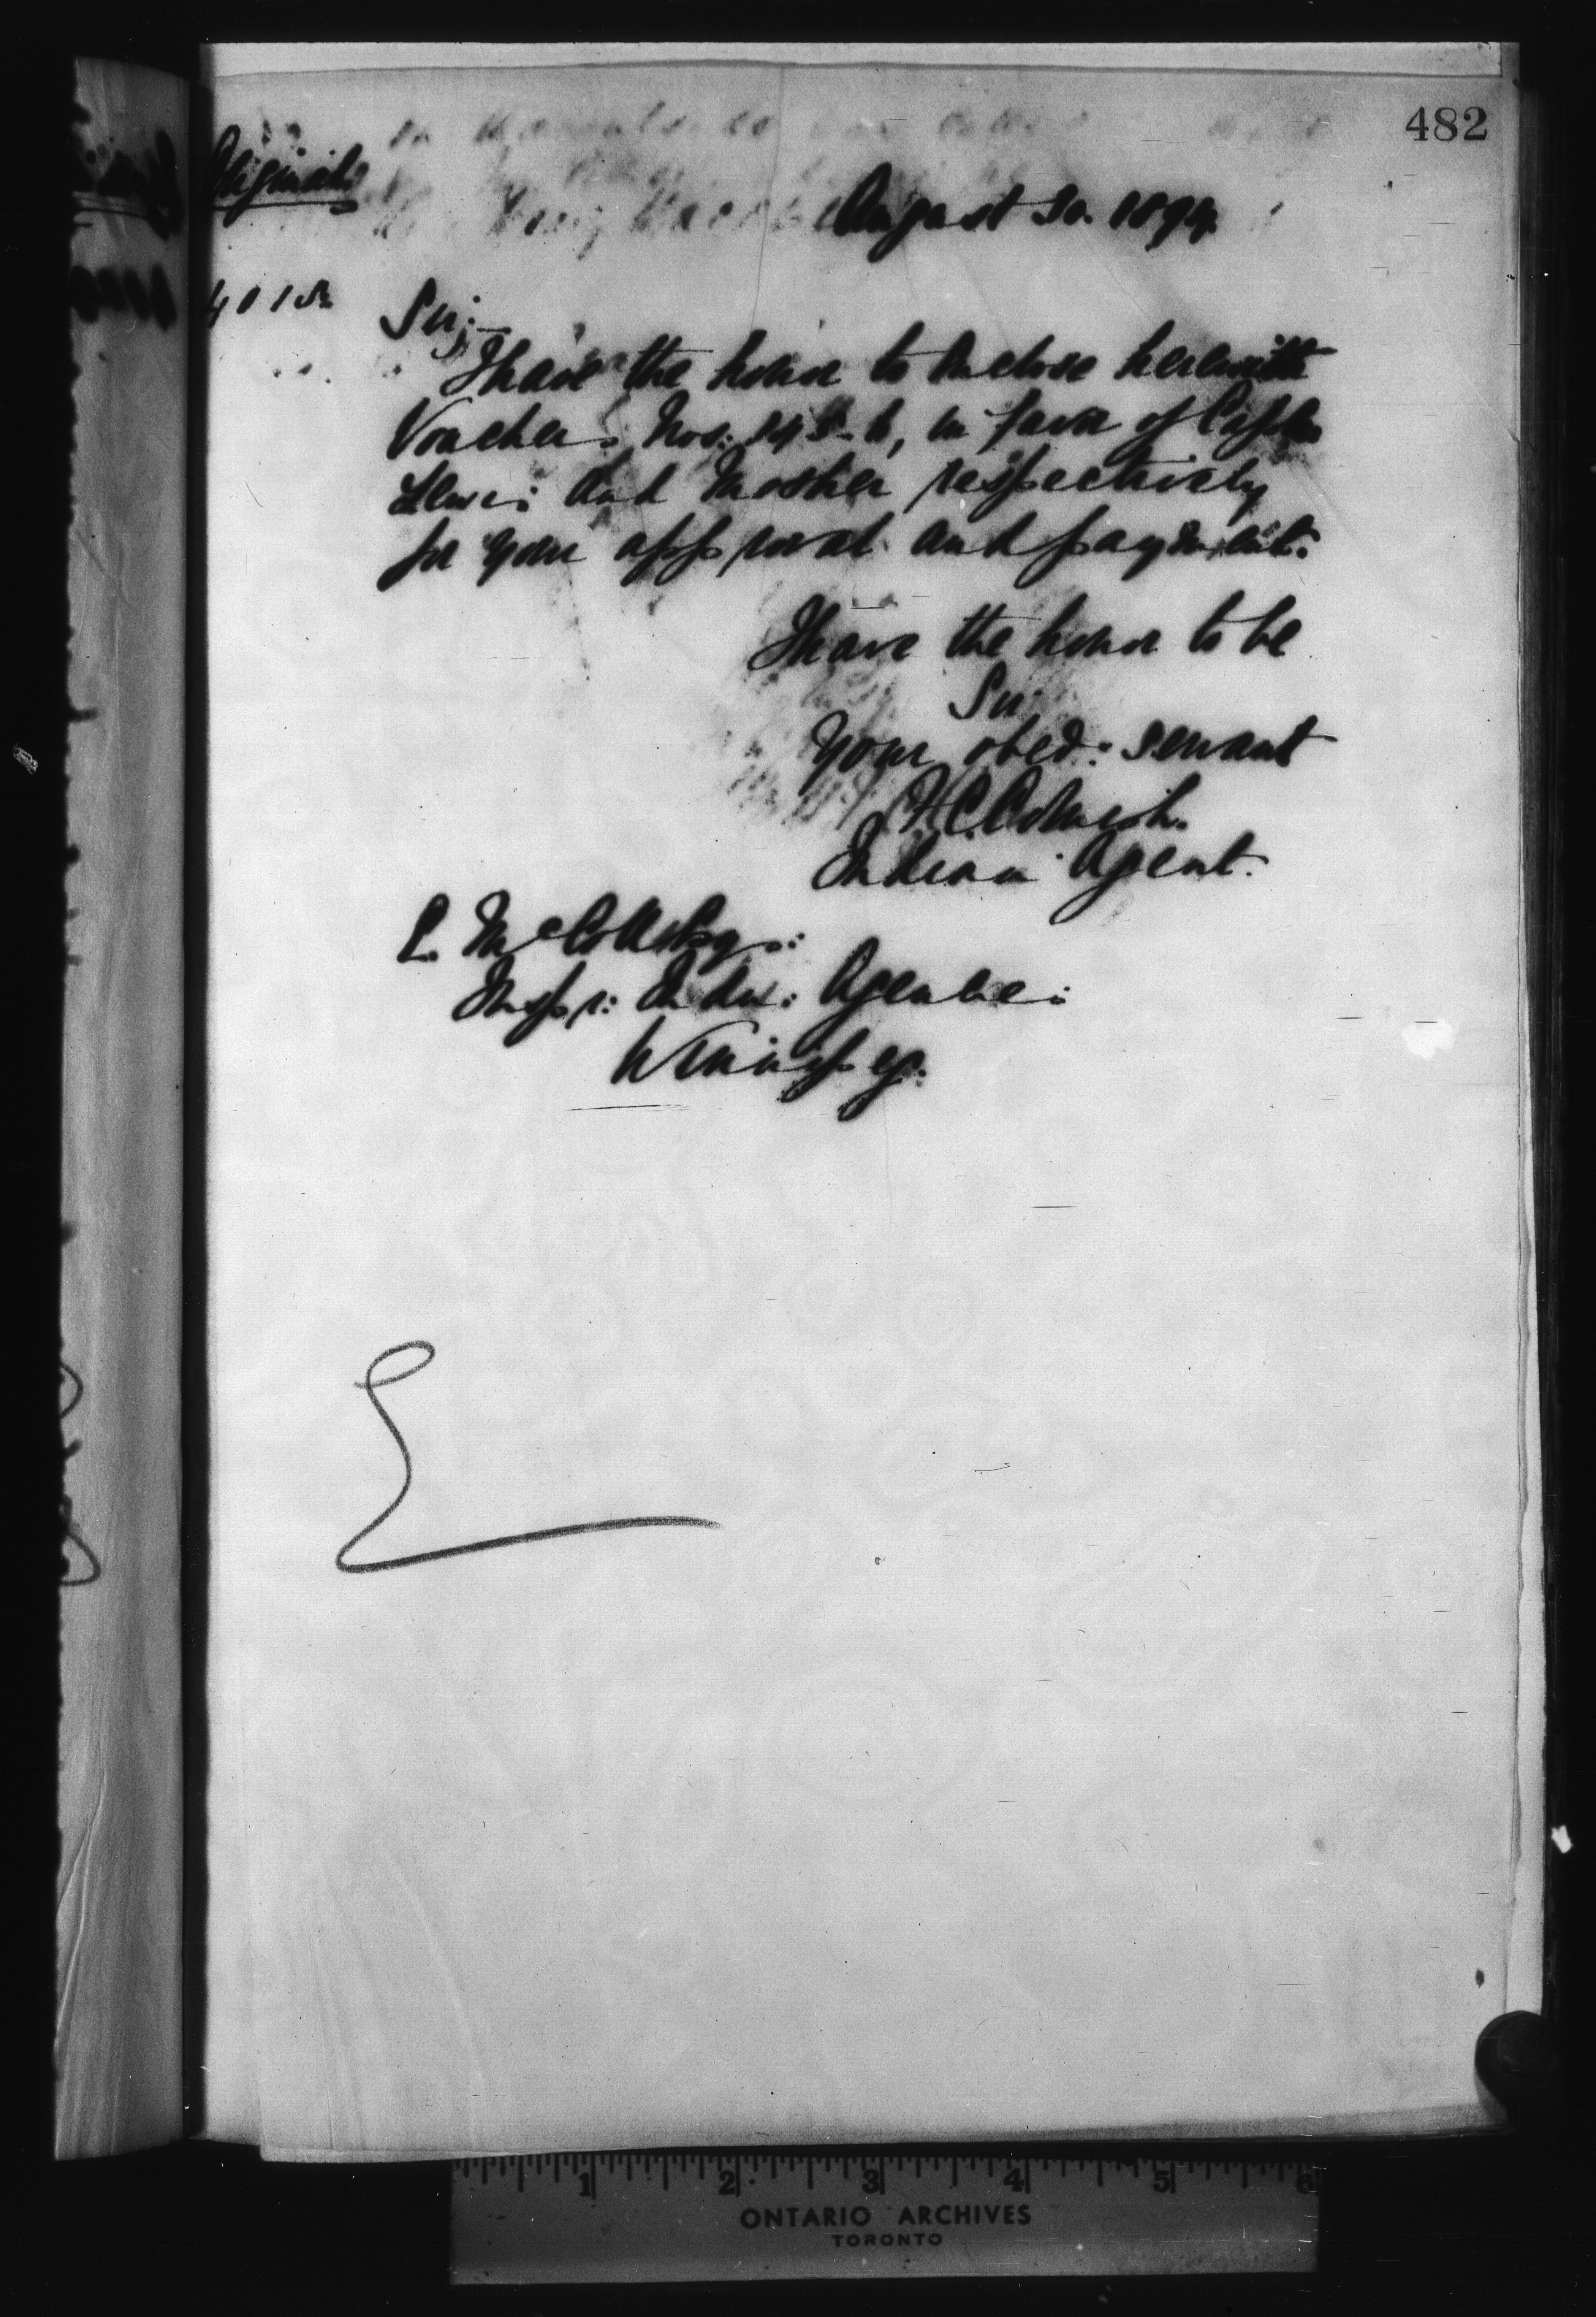 482
Original
August 30. 1894.
Sir;—
I have the honor to enclose herewith
Vouchers Nos: 145-6, in favor of Capts
Lewis and Mosher respectively
for your approval and payment.
I have the honor to be
Sir
Your obed: servant
Indian Agent.
E. McColl Esq:
Inspr: Indn: Agencies
Winnipeg.
1 2 3 4 5 6
ONTARIO ARCHIVES
TORONTO